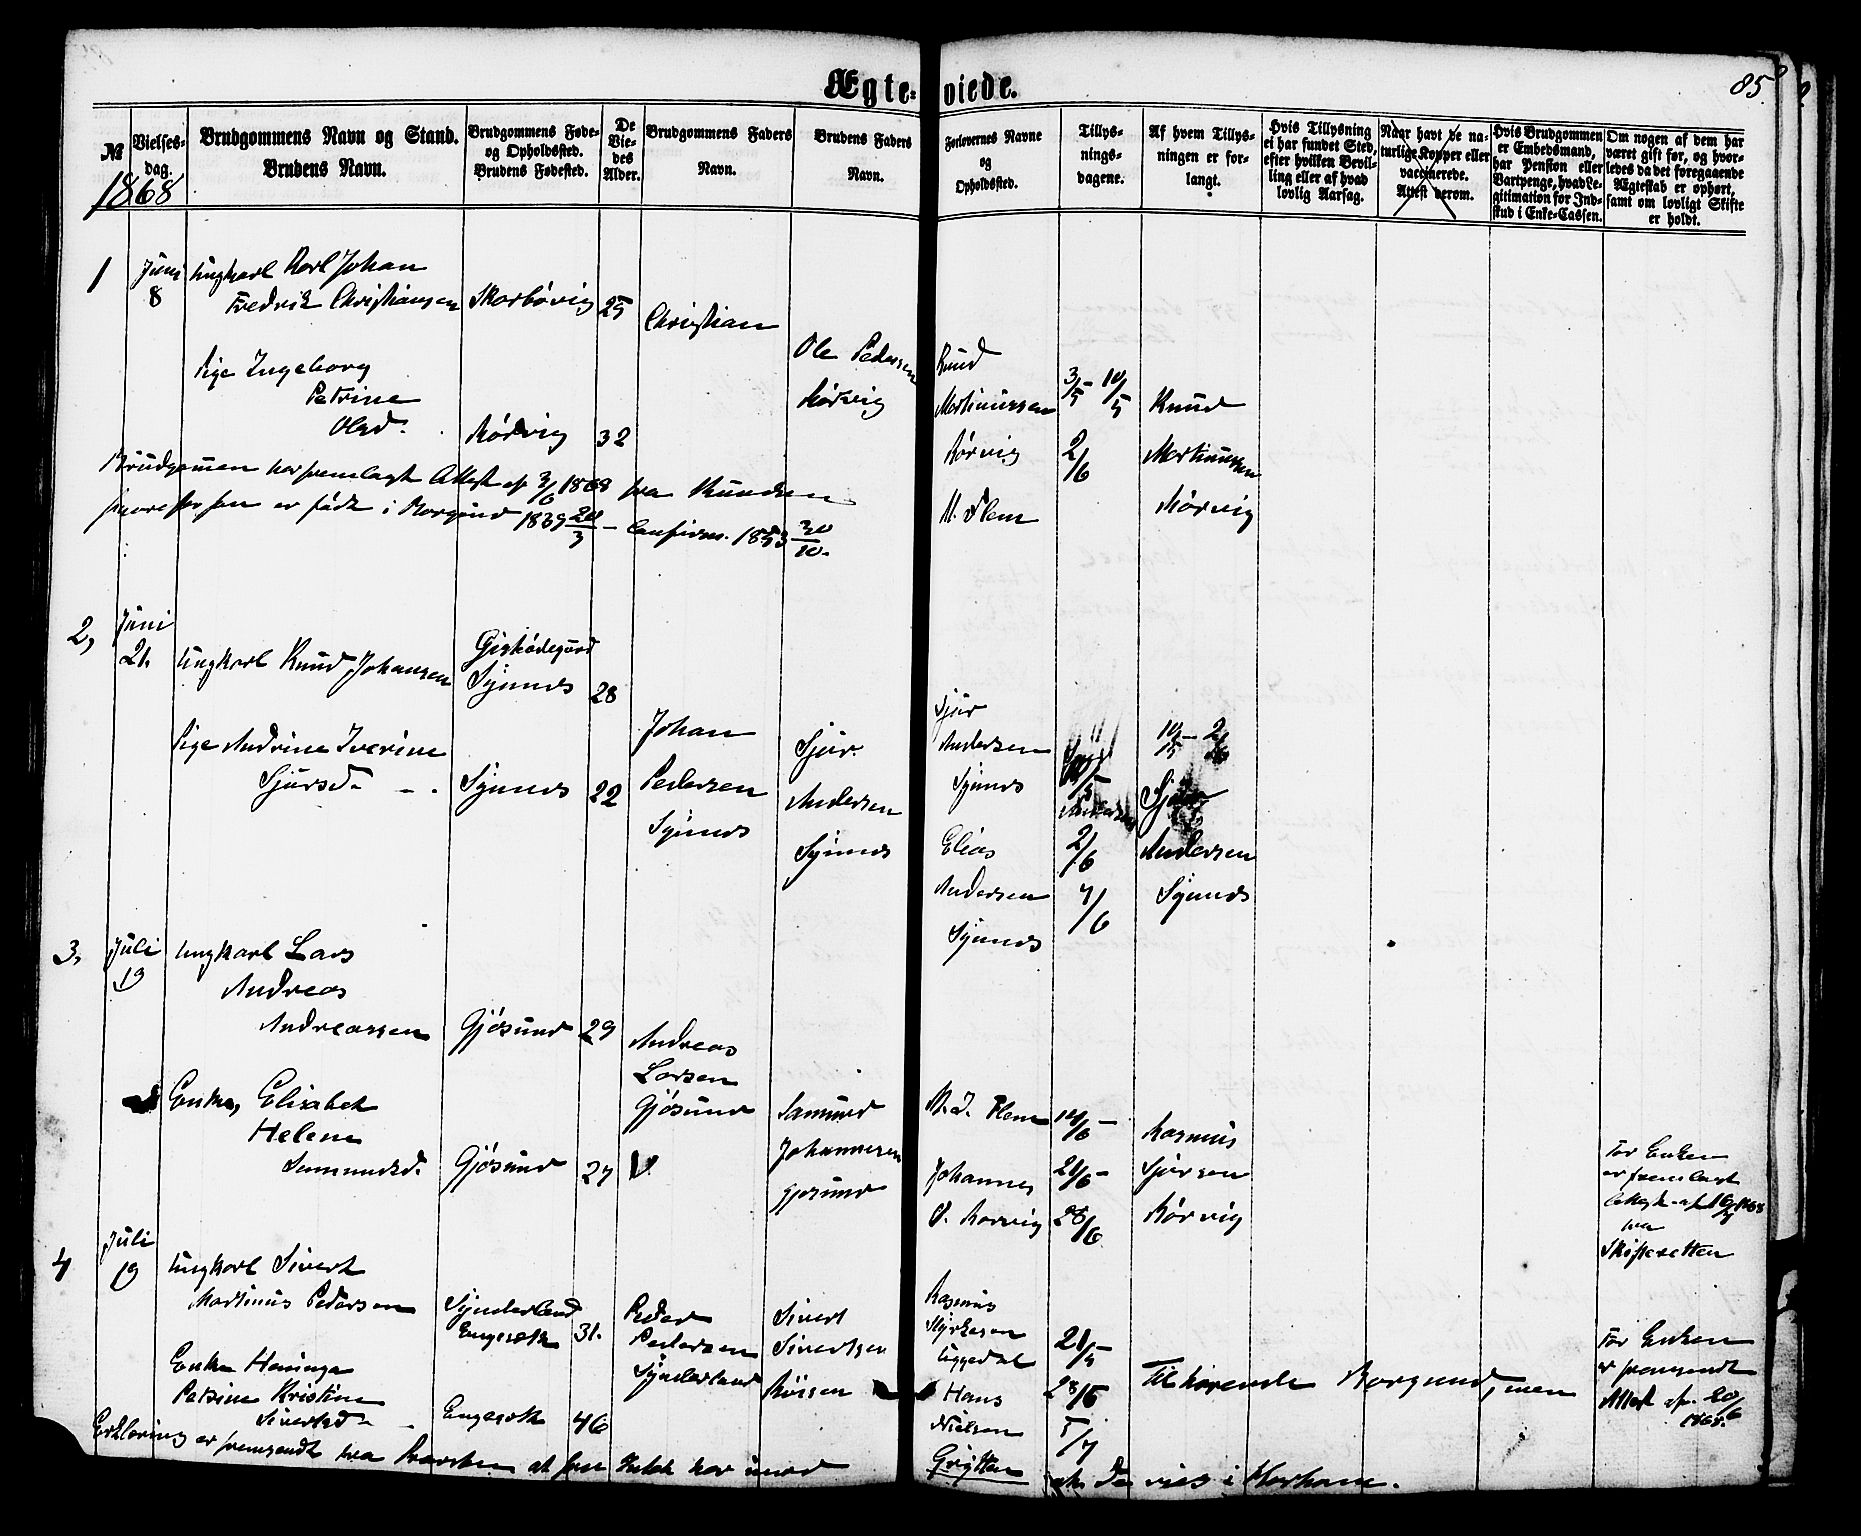 Ægteviede.
85
№
Vielsesdag.
Brudgommens Navn og Stand.
Brudens Navn.
Brudgommens Føde-
og Opholdssted.
Brudens Fødested.
De
Vie-
des
Alder.
Brudgommens Faders
Navn.
Brudens Faders
Navn.
Forlovernes Navne
og
Opholdssted.
Tillys-
nings-
dagene.
Af hvem Tillys-
ningen er for-
langt.
Hvis Tillysning
ei har fundet Sted,
efter hvilken Bevil-
ling eller af hvad
lovlig Aarsag.
Naar havt de na-
turlige Kopper eller
vaccinerede.
Attest derom.
Hvis Brudgommen
er Embedsmand,
har Pension eller
Vartpenge, hvad Le-
gitimation for Ind-
skud i Enke-Cassen.
Om nogen af dem har
været gift før, og hvor-
ledes da det foregaaende
Ægteskab er ophørt,
samt om lovligt Skifte
er holdt.
1868
1
Juni
8
Ungkarl Karl Johan
Fredrik Christiansen
Skarbøvig
25
Christian
Pige Ingeborg
Petrine
Olsd.
Rørvig
32
Ole Pedersen
Rørvig
Knud
Martinussen
Rørvig
M. Flem
3/5 - 10/5
2/6
Knud
Martinussen
Rørvig
Brudgommen har fremlagt Attest af 3/6 1868 fra Knudsen
hvorefter han er født i Borgund 1839 20/3 - Confirm. 1853 30/10.
2,
Juni
21.
Ungkarl Knud Johansen
Giskødegaard
Synnes
28
Pige Andrine Iverine
Sjursd.
Synnes
22
Johan
Pedersen
Synnes
Sjur
Andersen
Synnes
Sjur
Andersen
Synnes
Elias
Andersen
Synnes
2/6
7/6
Andersen
Synnes
3,
Juli
19
Ungkarl Lars
Andreas
Andreassen
Gjøsund
29
Andreas
Larsen
Gjøsund
Enke, Elisabet
Helene
Samundsd.
Gjøsund
27
Samund
Johannesen
Gjøsund
M. J. Flem
Johannes
O. Rørvig
14/6 -
21/6 -
28/6
Rasmus
Sjursen
Rørvig
For Enken
er fremlagt
Attest af 16/7 1868
fra
Skifteretten
4
Juli
19
Ungkarl Sivert
Martinus Pedersen
Synderland
Engesæth
31.
Peder
Pedersen
Synderland
Sivert
Sivertsen
Enke Hansine
Petrine Kristine
Sivertsd.
Engesæth
46
Rasmus
Styrkesen
Uggedal
Hans
Nielsen
Grytten
21/5
28/5
5/7
Tilhørende Borgund, men
For Enken
er fremsendt
Attest af 20/6
1868.
Erklæring er fremsendt fra Præsten at han Intet har imod
at de vies i Harham.